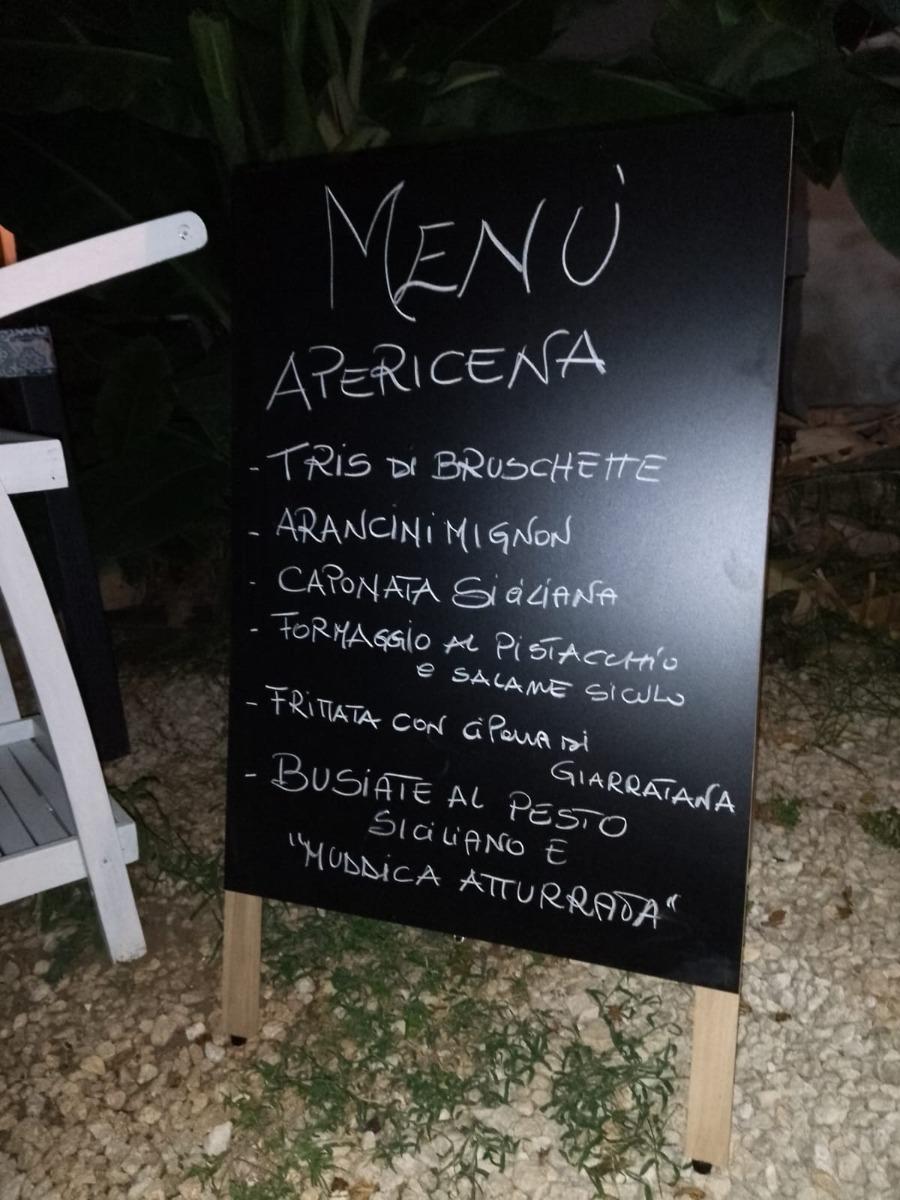 MENÙ
APERICENA
- TRIS DI BRUSCHETTE
- ARANCINI MIGNON
- CAPONATA SICILIANA
- FORMAGGIO AL PISTACCHIO
E SALAME SICULO
- FRITTATA CON CIPOLLA DI
GIARRATANA
- BUSIATE AL PESTO
SICILIANO E
"MUDDICA ATTURRATA"